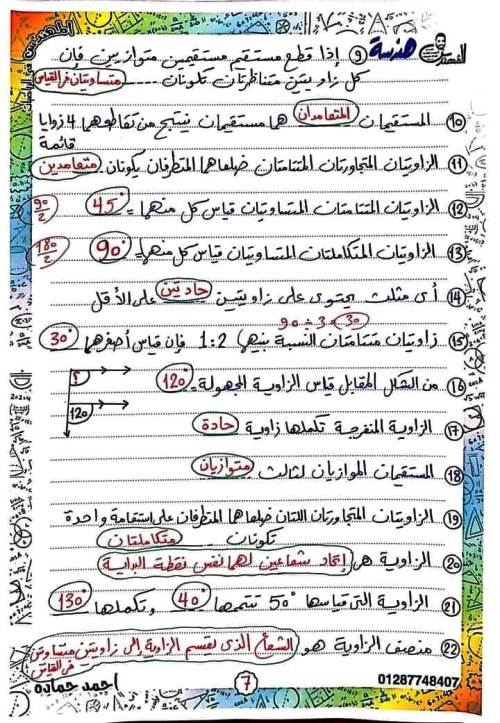 هندسة
⑨ إذا قطع مستقيم مستقيمين متوازيين فإن
كل زاويتين متناظرتان تكونان ---- متساويتان في القياس
⑩ المستقيمان المتعامدان هما مستقيمان ينتج من تقاطعهما 4 زوايا
قائمة
⑪ الزاويتان المتجاورتان المتتامتان ضلعاهما المتطرفان يكونان متعامدين
⑫ الزاويتان المتتامتان المتساويتان قياس كل منهما = 45° 90/2
⑬ الزاويتان المتكاملتان المتساويتان قياس كل منهما = 90° 180/2
⑭ أى مثلث يحتوى على زاويتين حادتين على الأقل
90 ÷ 3 = 30
⑮ زاويتان متتامتان النسبة بينهما 1:2 فإن قياس أصغرهما 30°
⑯ من الشكل المقابل قياس الزاوية المجهولة = 120°
؟
120
⑰ الزاوية المنفرجة تكملها زاوية حادة
⑱ المستقيمان الموازيان لثالث متوازيان
⑲ الزاويتان المتجاورتان اللتان ضلعاهما المتطرفان على استقامة واحدة
تكونان متكاملتان
⑳ الزاوية هى إتحاد شعاعين لهما نفس نقطة البداية
㉑ الزاوية التى قياسها 50° تتممها 40° وتكملها 130°
㉒ منصف الزاوية هو الشعاع الذى يقسم الزاوية إلى زاويتين متساويتين
فى القياس
احمد حماده
7
01287748407